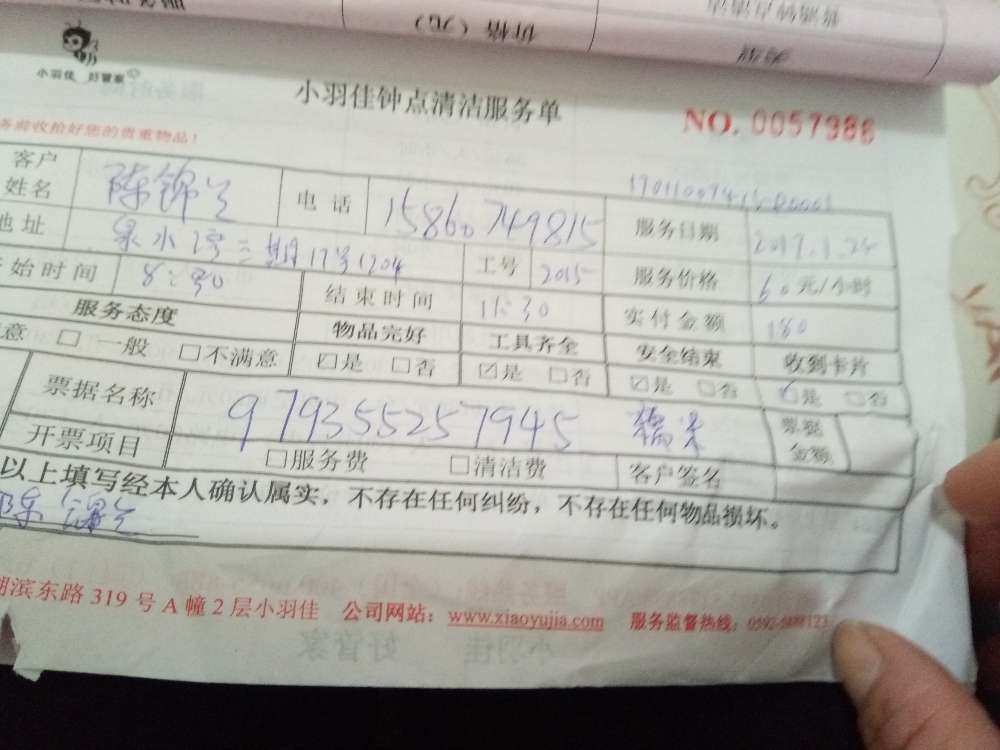 价格（元）
小羽佳 好管家
小羽佳钟点清洁服务单
NO. 0057986
务前收拾好您的贵重物品！
客户姓名 陈锦兰 电话 15860749815 服务日期
地址 泉水湾三期17号1204 工号 2015 服务价格 60元/小时
始时间 8:30 结束时间 11:30 实付金额 180
服务态度 物品完好 工具齐全 安全结束 收到卡片
意 □ 一般 □不满意 ☑是 □否 ☑是 □否 ☑是 □否 ☑是 □否
票据名称 979355257945 票据金额
开票项目 □服务费 □清洁费 客户签名
以上填写经本人确认属实，不存在任何纠纷，不存在任何物品损坏。
陈锦兰
湖滨东路 319 号 A 幢 2 层小羽佳 公司网站：www.xiaoyujia.com 服务监督热线：